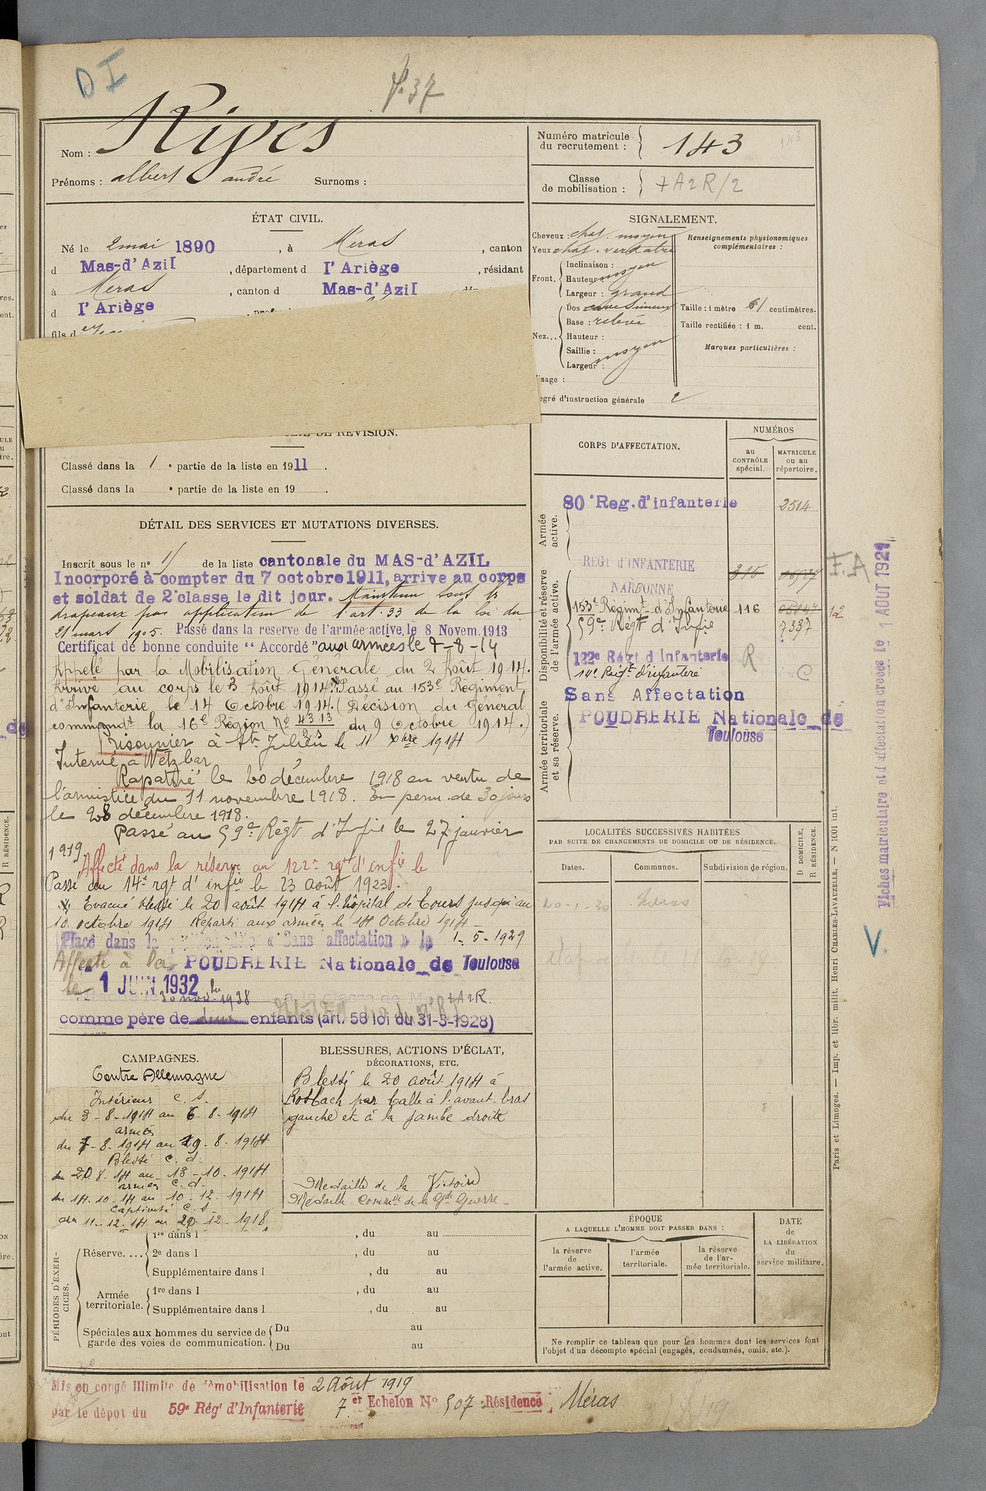 D I
f. 37
Nom : Rives
Prénoms : albert andré Surnoms :
Numéro matricule du recrutement : 143
143
Classe de mobilisation : + A2R/2
ÉTAT CIVIL.
Né le 2 mai 1890, à Méras, canton
d Mas-d'Azil, département d l'Ariège, résidant
à Méras, canton d Mas-d'Azil
d l'Ariège
fils d
SIGNALEMENT.
Cheveux chat. moyen
Yeux chat. verdatre
Front. Inclinaison :
Hauteur moyen
Largeur : grand
Nez... Dos
Base : relevée
Hauteur :
Saillie : moyen
Largeur :
isage :
egré d'instruction générale 2
Renseignements physionomiques complémentaires :
Taille : 1 mètre 61 centimètres.
Taille rectifiée : 1 m. cent.
Marques particulières :
DE RÉVISION.
Classé dans la 1 e partie de la liste en 1911.
Classé dans la e partie de la liste en 19 .
DÉTAIL DES SERVICES ET MUTATIONS DIVERSES.
Inscrit sous le no 11 de la liste cantonale du MAS-d'AZIL
Incorporé à compter du 7 octobre 1911, arrivé au corps
et soldat de 2e classe le dit jour. Maintenu sous les
drapeaux par application de l'art. 33 de la loi du
21 mars 1905. Passé dans la reserve de l'armée active, le 8 Novem. 1913
Certificat de bonne conduite "Accordé" aux armées le 7-8-14
Appelé par la Mobilisation Générale du 2 Août 1914.
Arrivé au corps le 3 Août 1914. Passé au 153e Régiment
d'Infanterie le 14 Octobre 1914. (Décision du Général
commandt la 16e Région No 4313 du 9 Octobre 1914.)
Prisonnier à St Julien le 11 Xbre 1914
Interné à Wetzlar
Rapatrié le 20 décembre 1918 en vertu de
l'armistice du 11 novembre 1918. En perm. de 30 jours
le 28 décembre 1918.
Passé au 59e Régt d'Infie le 27 janvier
1919 Affecté dans la réserve au 122e rgt d'infie le
Passé au 14e rgt d'infie le 23 août 1923.
Evacué blessé le 20 août 1914 à l'hôpital de Tours jusqu'au
10 octobre 1914 Reparti aux armées le 14 Octobre 1914
Placé dans la « Sans affectation » le 1-5-1929
Affecté à la POUDRERIE Nationale de Toulouse
le 1 JUIN 1932
30 nov. 1938 + A2R
comme père de deux enfants (art. 58 loi du 31-3-1928)
CORPS D'AFFECTATION.
NUMÉROS
au CONTRÔLE spécial.
MATRICULE ou au répertoire.
Armée active.
80e Reg. d'infanterie 2514
Disponibilité et réserve de l'armée active.
REGt D'INFANTERIE
NARBONNE
153e Régimt d'Infanterie 116
59e Régt d'Infie 7337
122e Régt d'Infanterie R
14e Régt d'infanterie C
Armée territoriale et sa réserve.
Sans Affectation
POUDRERIE Nationale de
Toulouse
F.A
12
Fiches matriculaire et d'affectation créées le 1 AOUT 1921
V.
LOCALITÉS SUCCESSIVES HABITÉES
PAR SUITE DE CHANGEMENTS DE DOMICILE OU DE RÉSIDENCE.
Dates.
Communes.
Subdivision de région.
D DOMICILE, R RÉSIDENCE.
20-1-20 Méras
CAMPAGNES.
Contre Allemagne
Intérieur C. S.
du 3-8-1914 au 6-8-1914
armées
du 7-8-1914 au 19-8-1914
Blessé C. d.
du 20.8.1914 au 13-10-1914
armées C. d.
du 14.10.14 au 10-12-1914
Captivité C. S.
du 11-12-14 au 20-12-1918
BLESSURES, ACTIONS D'ÉCLAT,
DÉCORATIONS, ETC.
Blessé le 20 août 1914 à
Rosbach par balle à l'avant-bras
gauche et à la jambe droite
Medaille de la Victoire
Medaille Commve de la Gde Guerre
PÉRIODES D'EXERCICES.
Réserve....
1re dans l , du au
2e dans l , du au
Supplémentaire dans l , du au
Armée territoriale.
1re dans l , du au
Supplémentaire dans l , du au
Spéciales aux hommes du service de garde des voies de communication.
Du au
Du au
ÉPOQUE
A LAQUELLE L'HOMME DOIT PASSER DANS :
la réserve de l'armée active.
l'armée territoriale.
la réserve de l'armée territoriale.
DATE de LA LIBÉRATION du service militaire.
Ne remplir ce tableau que pour les hommes dont les services font
l'objet d'un décompte spécial (engagés, condamnés, omis, etc.).
Paris et Limoges. — Imp. et libr. milit. Henri CHARLES-LAVAUZELLE. — N 1001 int.
Mis en congé illimité de démobilisation le 2 Août 1919
7er Echelon No 507 Résidence Méras
par le dépôt du 59e Régt d'Infanterie